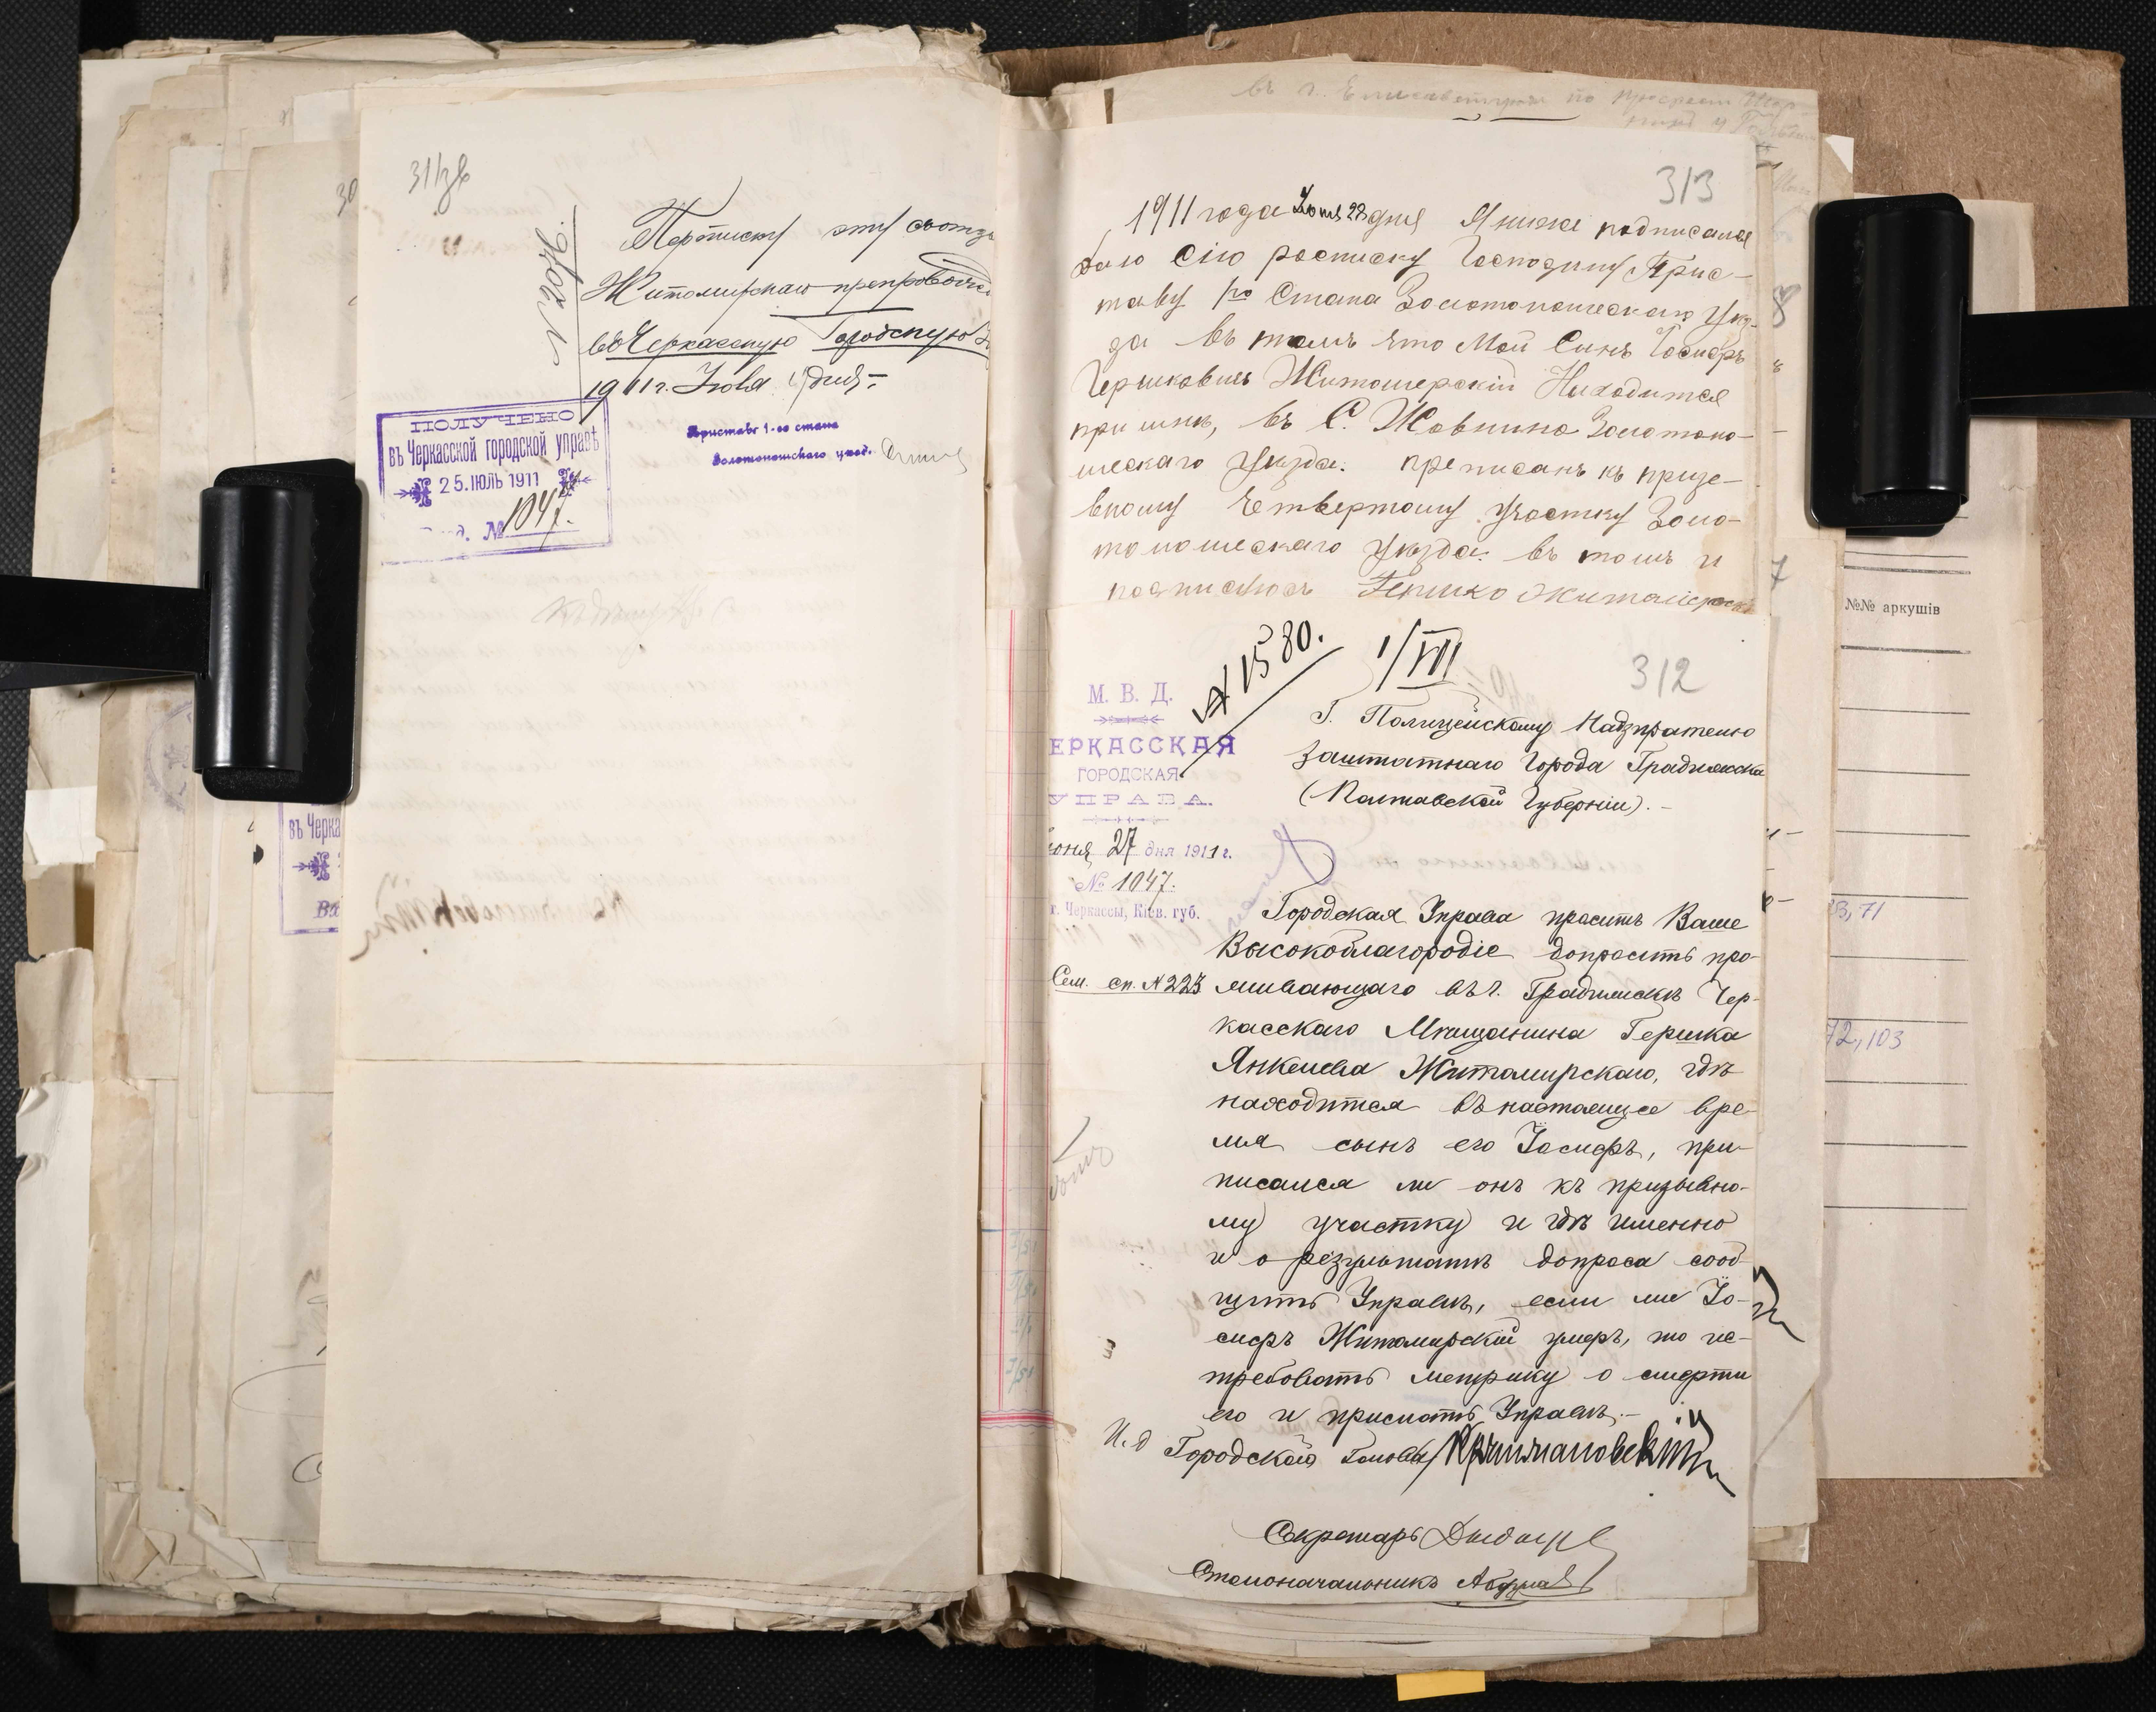 311зв
Переписку эту съ отзы
Житомирскаго препровожда
въ Черкасскую Городскую
1911 г. Іюля дня
ПОЛУЧЕНО
въ Черкасской городской управѣ
25.ІЮЛЬ 1911
№ 1047.
Приставъ 1-го стана
Золотоношскаго уѣзд.
въ Черка
313
1911 года Іюля 28 дня Я ниже подписался
даю сію росписку Господину Прис-
таву 1го Стана Золотоношескаго Уѣз-
да въ томъ что Мой Сынъ Іосифъ
Гершковичъ Житомерскій Находится
при мнѣ, въ С. Жовнино Золотоно-
шескаго Уѣзда. преписанъ къ призе-
вному Четвертому Участку Золо-
тоношескаго Уѣзда. въ томъ и
подписуюсь Гершко Житомерскі
№ 1580.
1/VII
312
М. В. Д.
ЕРКАССКАЯ
ГОРОДСКАЯ
УПРАВА.
юня 27 дня 1911 г.
№ 1047.
г. Черкассы, Кіев. губ.
Г. Полицейскому Надзирателю
Заштатнаго Города Градижска
(Полтавской Губерніи).-
Городская Управа проситъ Ваше
Высокоблагородіе допросить про-
Сем. сп. N 223
живающаго въ г. Градижскѣ Чер-
касскаго Мѣщанина Гершка
Янкелева Житомирскаго, гдѣ
находится въ настоящее вре-
мя сынъ его Іосифъ, при-
писался ли онъ къ призывно-
му участку и гдѣ именно
и о результатѣ допроса сооб-
щить Управѣ, если же Іо-
сифъ Житомирскій умеръ, то ис-
требовать метрику о смерти
его и прислать Управѣ.-
И. д Городского Головы
Секретарь
Столоначальникъ
№№ аркушів
72, 103